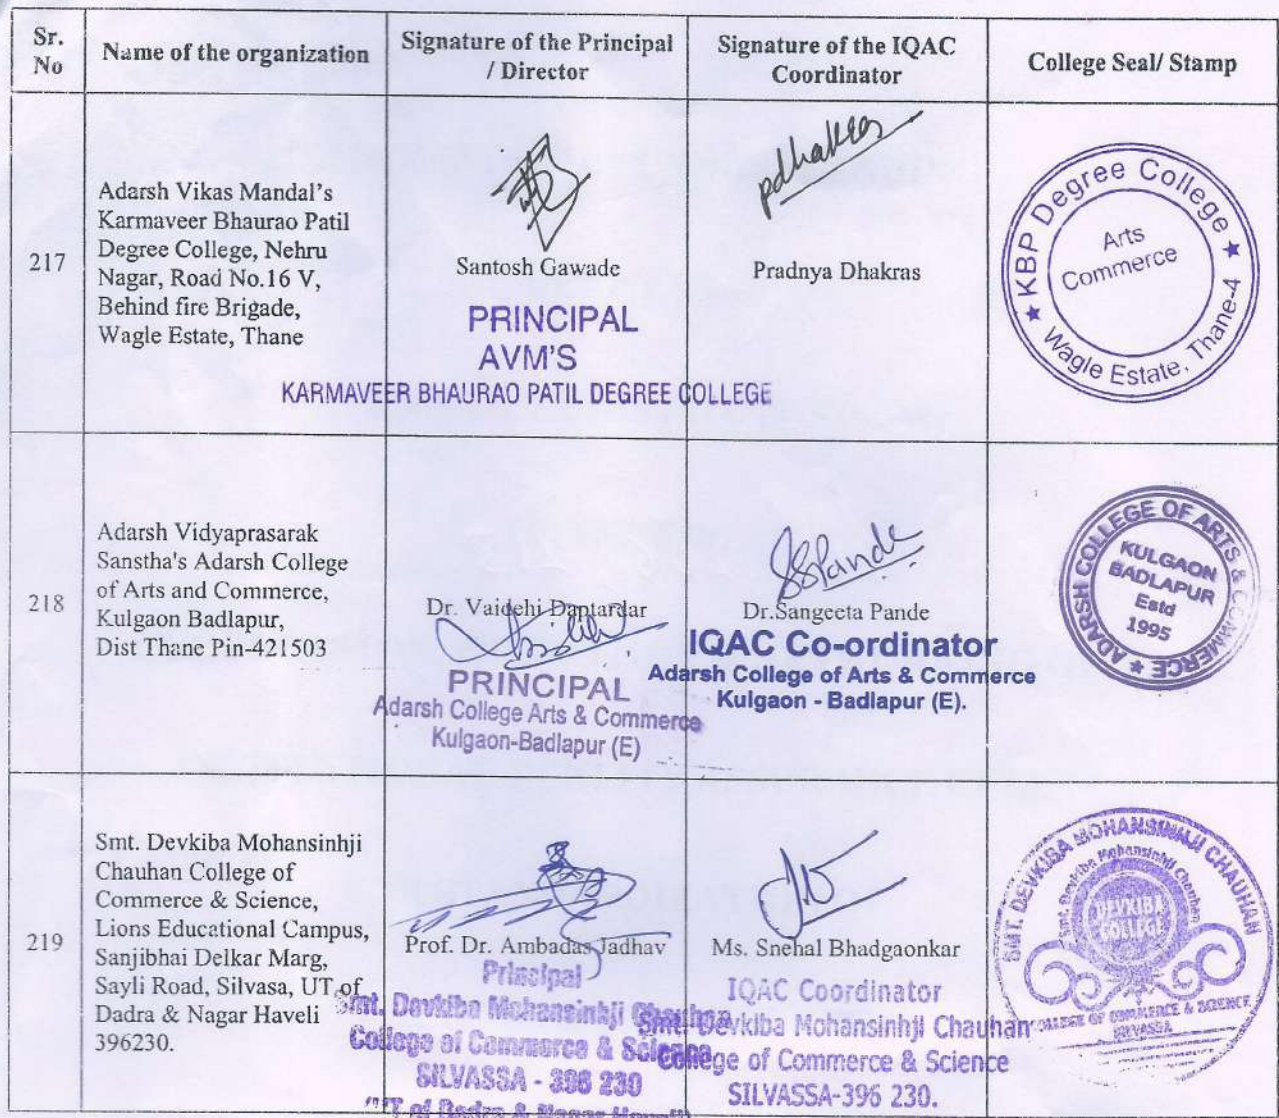 Sr.
No
Name of the organization
Signature of the Principal
/ Director
Signature of the IQAC
Coordinator
College Seal/ Stamp
217
Adarsh Vikas Mandal's
Karmaveer Bhaurao Patil
Degree College, Nehru
Nagar, Road No.16 V,
Behind fire Brigade,
Wagle Estate, Thane
Santosh Gawade
PRINCIPAL
AVM'S
KARMAVEER BHAURAO PATIL DEGREE COLLEGE
pdhakras
Pradnya Dhakras
★ KBP Degree College ★
Arts
Commerce
Wagle Estate, Thane-4
218
Adarsh Vidyaprasarak
Sanstha's Adarsh College
of Arts and Commerce,
Kulgaon Badlapur,
Dist Thane Pin-421503
Dr. Vaidehi Daptardar
PRINCIPAL
Adarsh College Arts & Commerce
Kulgaon-Badlapur (E)
SSPande
Dr.Sangeeta Pande
IQAC Co-ordinator
Adarsh College of Arts & Commerce
Kulgaon - Badlapur (E).
ADARSH COLLEGE OF ARTS & COMMERCE ★
KULGAON
BADLAPUR
Estd
1995
219
Smt. Devkiba Mohansinhji
Chauhan College of
Commerce & Science,
Lions Educational Campus,
Sanjibhai Delkar Marg,
Sayli Road, Silvasa, UT of
Dadra & Nagar Haveli
396230.
Prof. Dr. Ambadas Jadhav
Principal
Smt. Devkiba Mohansinhji Chauhan
College of Commerce & Science
SILVASSA - 396 230
(UT of Dadra & Nagar Haveli)
Ms. Snehal Bhadgaonkar
IQAC Coordinator
Smt. Devkiba Mohansinhji Chauhan
College of Commerce & Science
SILVASSA-396 230.
SMT. DEVKIBA MOHANSINHJI CHAUHAN
Smt. Devkiba Mohansinhji Chauhan
DEVKIBA
COLLEGE
COLLEGE OF COMMERCE & SCIENCE
SILVASSA